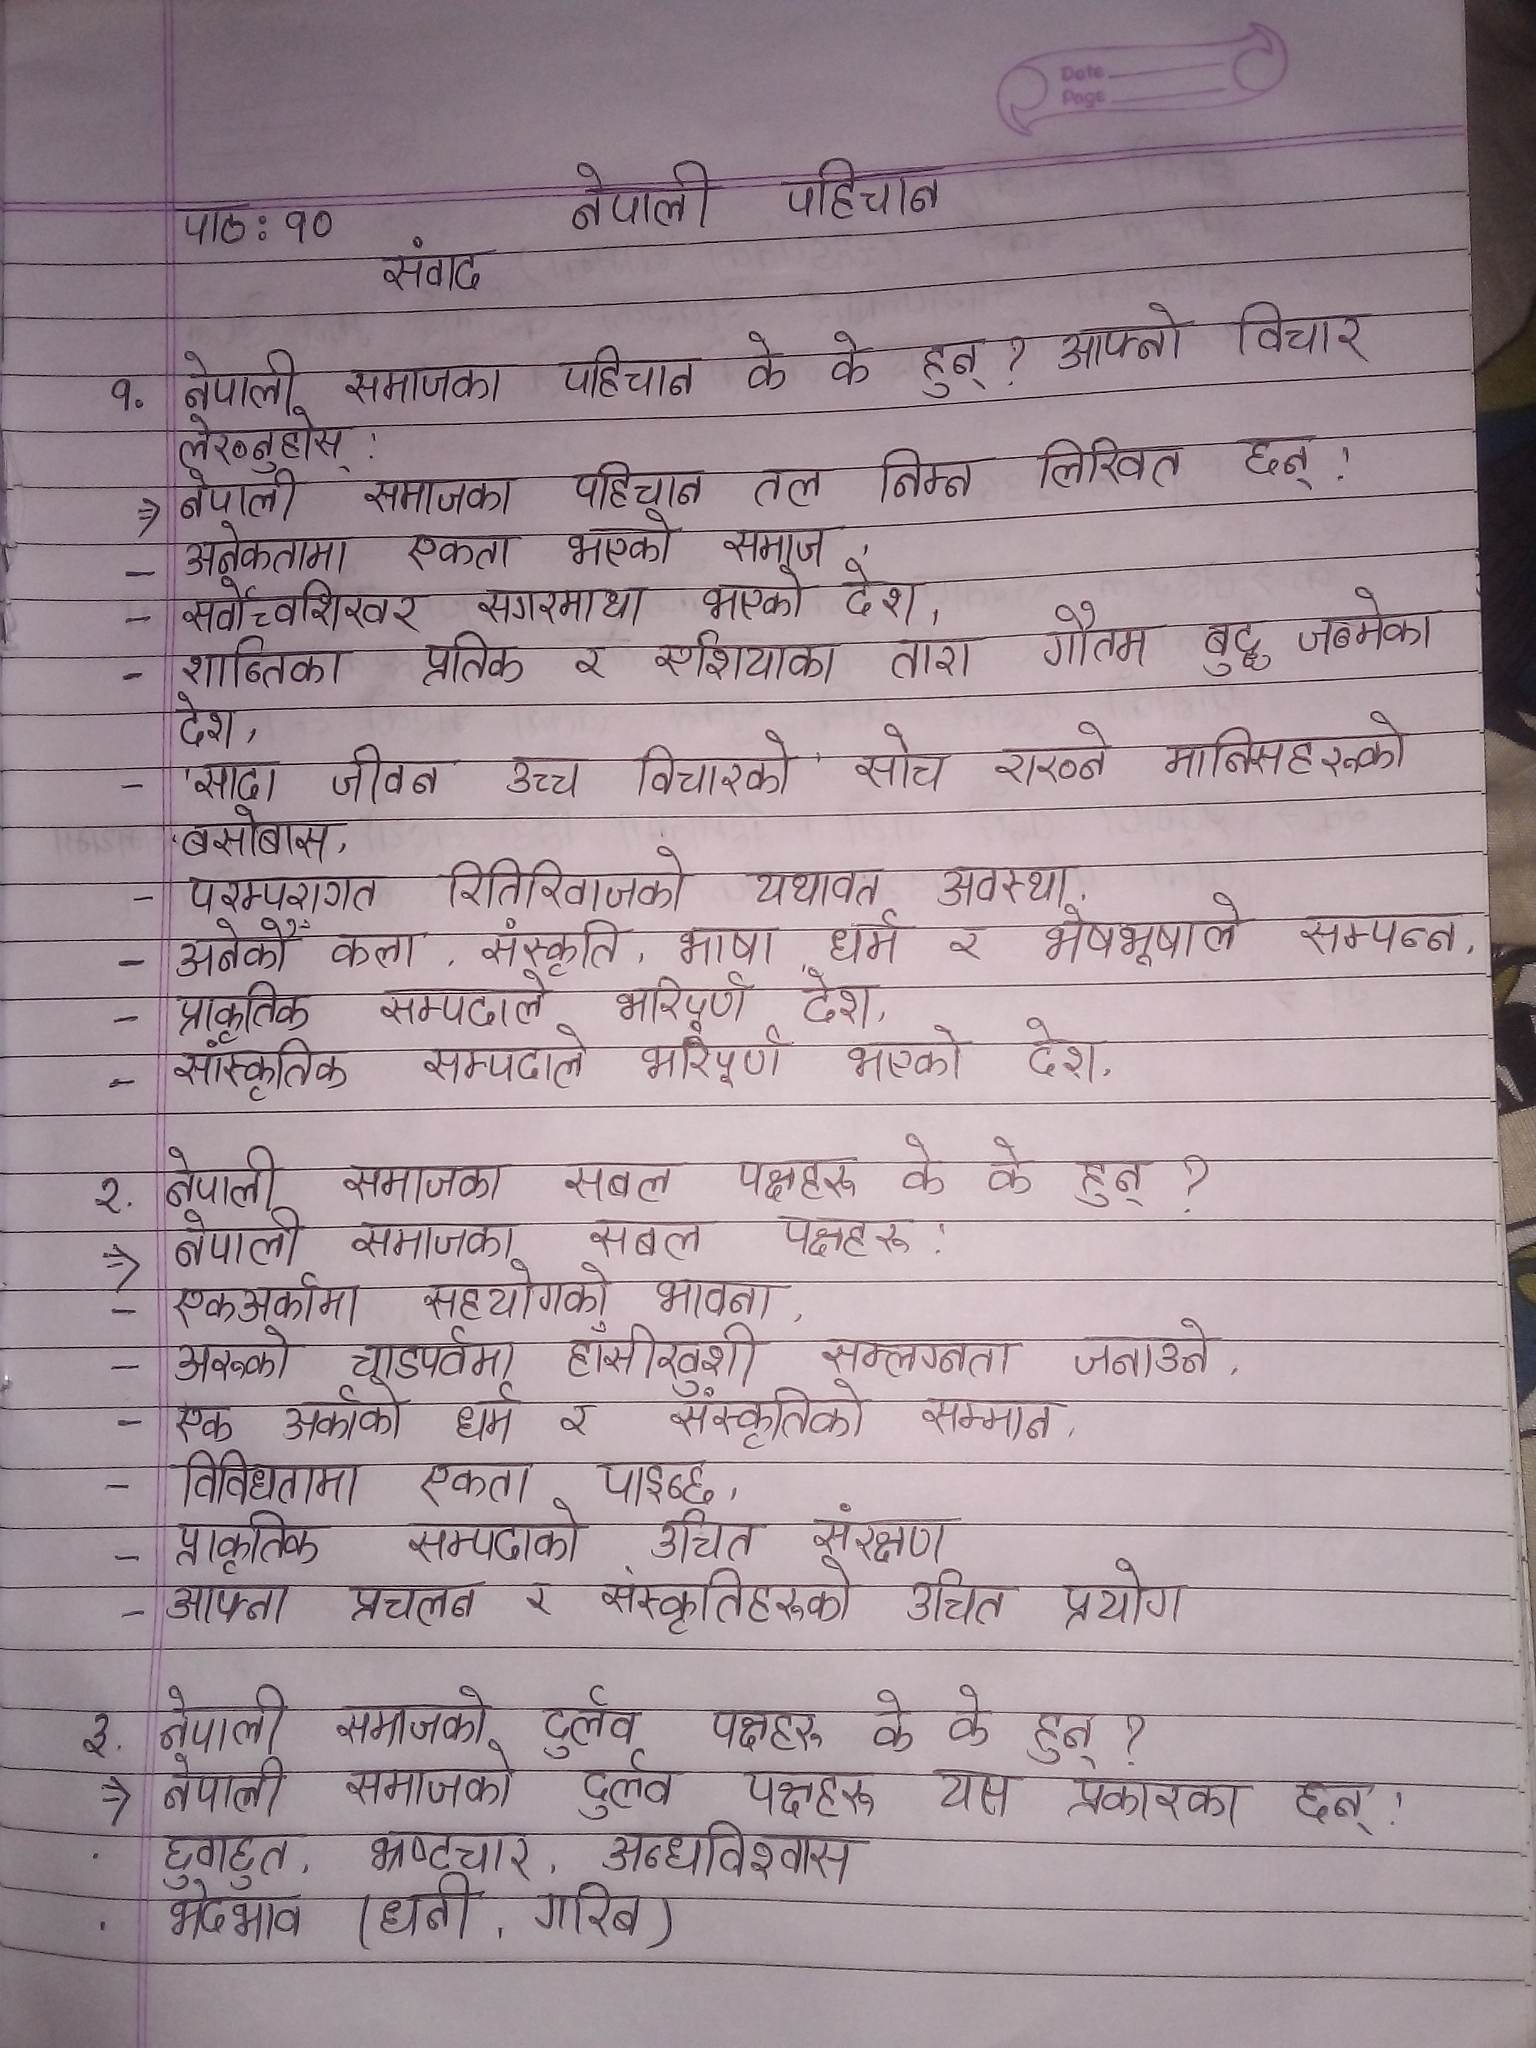 Date
Page
पाठ: १० नेपाली पहिचान
संवाद
१. नेपाली समाजका पहिचान के के हुन्? आफ्नो विचार
लेख्नुहोस्:
⇒ नेपाली समाजका पहिचान तल निम्न लिखित छन्:
- अनेकतामा एकता भएको समाज,
- सर्वोच्चशिखर सगरमाथा भएको देश,
- शान्तिका प्रतिक र एशियाका तारा गौतम बुद्ध जन्मेका
देश,
- 'सादा जीवन उच्च विचारको' सोच राख्ने मानिसहरूको
बसोबास,
- परम्परागत रितिरिवाजको यथावत अवस्था,
- अनेकौँ कला, संस्कृति, भाषा, धर्म र भेषभूषाले सम्पन्न,
- प्राकृतिक सम्पदाले भरिपूर्ण देश,
- सांस्कृतिक सम्पदाले भरिपूर्ण भएको देश,
२. नेपाली समाजका सबल पक्षहरू के के हुन्?
⇒ नेपाली समाजका सबल पक्षहरू:
- एकअर्कामा सहयोगको भावना,
- अरूको चाडपर्वमा हाँसीखुशी सम्लग्नता जनाउने,
- एक अर्काको धर्म र संस्कृतिको सम्मान,
- विविधतामा एकता पाइन्छ,
- प्राकृतिक सम्पदाको उचित संरक्षण
- आफ्ना प्रचलन र संस्कृतिहरूको उचित प्रयोग
३. नेपाली समाजको दुर्लव पक्षहरू के के हुन्?
⇒ नेपाली समाजको दुर्लव पक्षहरू यस प्रकारका छन्:
. छुवाछुत, भ्रष्टचार, अन्धविश्वास
. भेदभाव (धनी, गरिब)